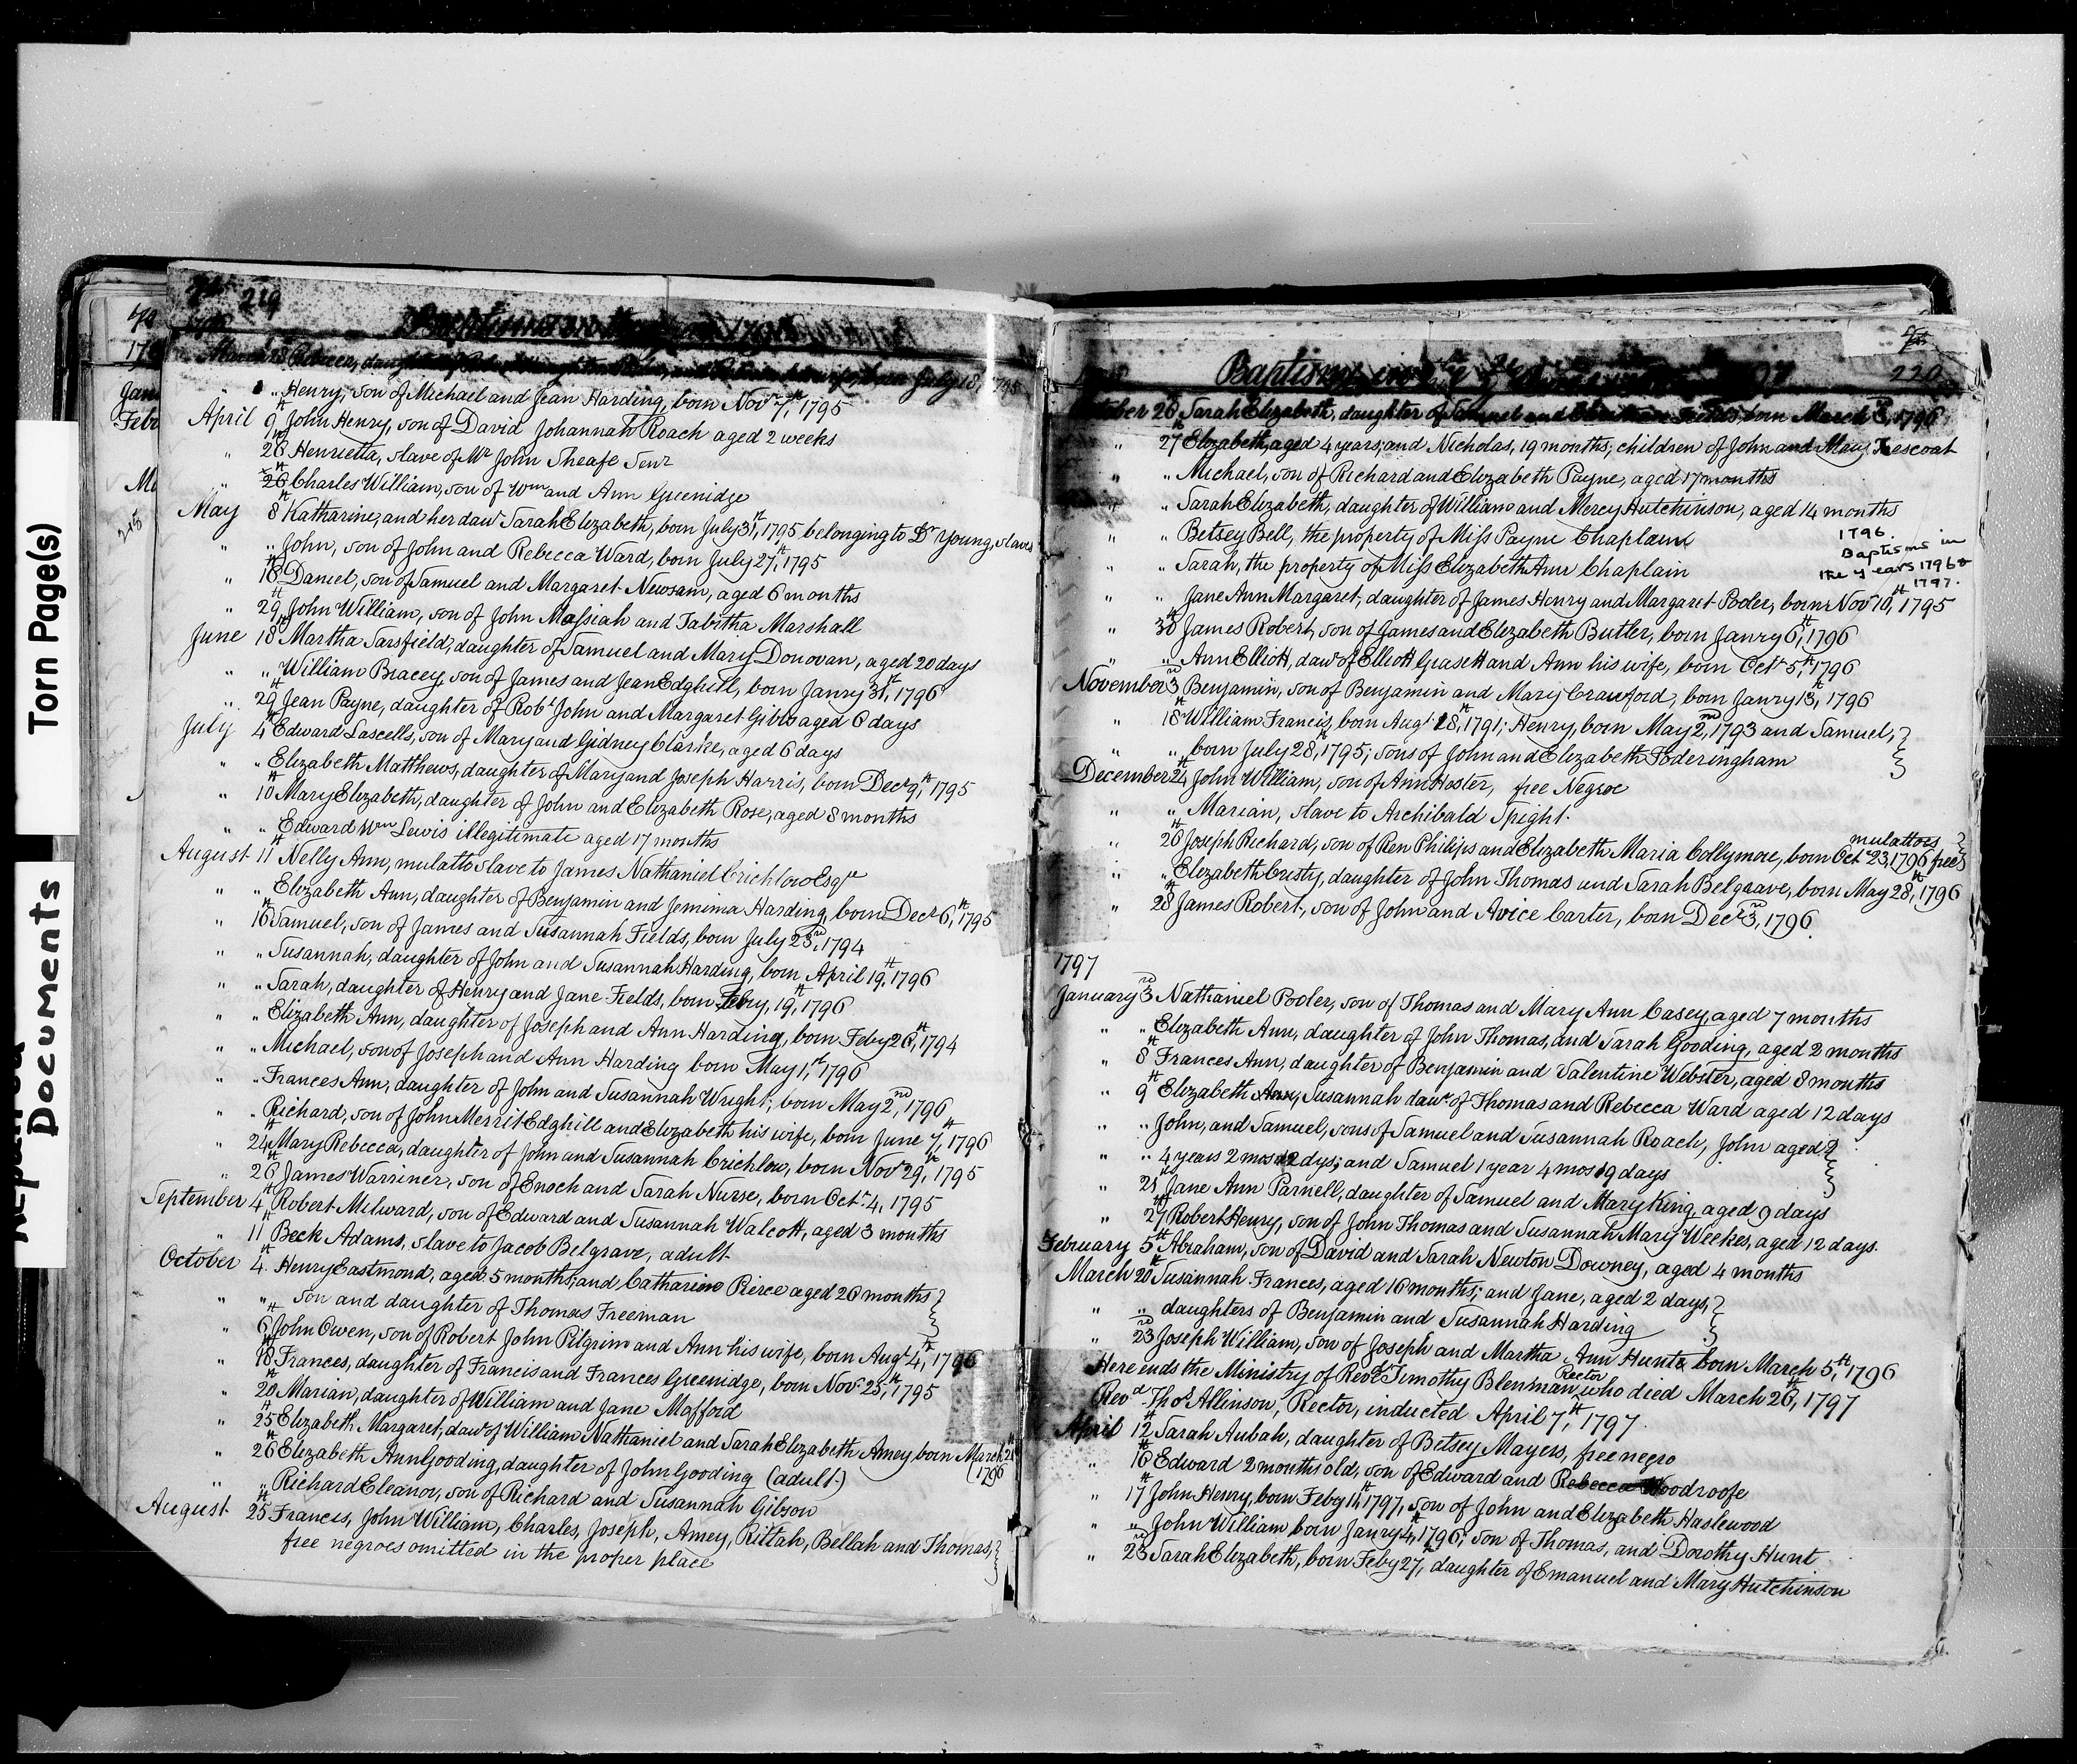 Torn Page(s)
Documents
219
Rebecca, daughter of July 18, 1795
" " Henry, son of Michael and Jean Harding, born Novr 7th, 1795
April 9th John Henry, son of David Johannah Roach aged 2 weeks
" 26 Henrietta, slave of Mr John Sheafe Senr
" 26th Charles William, son of Wm and Ann Greenidge
May 8th Katharine, and her dawr Sarah Elizabeth, born July 31st, 1795 belonging to Dr Young, slaves
" " John, son of John and Rebecca Ward, born July 27th, 1795
" 18th Daniel, son of Samuel and Margaret Newsam, aged 6 months
" 29th John William, son of John Massiah and Tabitha Marshall
June 18th Martha Sarsfield, daughter of Samuel and Mary Donovan, aged 20 days
" " William Bracey, son of James and Jean Edghill, born Janry 31st, 1796
" 29th Jean Payne, daughter of Robt John and Margaret Gibbs aged 6 days
July 4th Edward Lascells, son of Mary and Gidney Clarke, aged 6 days
" " Elizabeth Matthews, daughter of Mary and Joseph Harris, born Decr 9th, 1795
" 10th Mary Elizabeth, daughter of John and Elizabeth Rose, aged 8 months
" " Edward Wm Lewis illegitimate aged 17 months
August 11th Nelly Ann, mulatto slave to James Nathaniel Crichlow Esqre
" " Elizabeth Ann, daughter of Benjamin and Jemima Harding, born Decr 6th, 1795
" 16th Samuel, son of James and Susannah Fields, born July 23rd, 1794
" " Susannah, daughter of John and Susannah Harding, born April 19th, 1796
" " Sarah, daughter of Henry and Jane Fields, born Febry, 19th, 1796
" " Elizabeth Ann, daughter of Joseph and Ann Harding, born Feby 26th, 1794
" " Michael, son of Joseph and Ann Harding born May 1st, 1796
" " Frances Ann, daughter of John and Susannah Wright, born May 2nd, 1796
" " Richard, son of John Merrit Edghill and Elizabeth his wife, born June 7th, 1796
" 24th Mary Rebecca, daughter of John and Susannah Crichlow, born Novr 29th, 1795
" 26th James Warriner, son of Enoch and Sarah Nurse, born Octr 4, 1795
September 4th Robert Milward, son of Edward and Susannah Walcott, aged 3 months
" 11th Beck Adams, slave to Jacob Belgrave, adult
October 4th Henry Eastmond, aged 5 months, and Catharine Pierce aged 26 months
" " son and daughter of Thomas Freeman
" 6th John Owen, son of Robert John Pilgrim and Ann his wife, born Augt 4th, 1796
" 18th Frances, daughter of Francis and Frances Greenidge, born Novr 25th, 1795
" 20th Marian, daughter of William and Jane Mafford
" 25th Elizabeth Margaret, dawr of William Nathaniel and Sarah Elizabeth Amey born March 21st
1796
" 26th Elizabeth Ann Gooding, daughter of John Gooding (adult)
" " Richard Eleanor, son of Richard and Susannah Gibson
August 25th Francis, John William, Charles, Joseph, Amey, Kittah, Bellah and Thomas,
free negroes omitted in the proper place
Baptisms in the
220
October 26 Sarah Elizabeth, daughter of Samuel and born March 3, 1796
" 27th Elizabeth, aged 4 years, and Nicholas, 19 months, children of John and Mary Trescoat
" " Michael, son of Richard and Elizabeth Payne, aged 17 months
" " Sarah Elizabeth, daughter of William and Mercy Hutchinson, aged 14 months
" " Betsey Bell, the property of Miss Payne Chaplain
1796.
Baptisms in
the years 1796 &
1797.
" " Sarah, the property of Miss Elizabeth Ann Chaplain
" " Jane Ann Margaret, daughter of James Henry and Margaret Poder, born Novr 10th, 1795
" 30th James Robert, son of James and Elizabeth Butler, born Janry 6th, 1796
" " Ann Elliott, dawr of Elliott Grasett and Ann his wife, born Octr 5th, 1796
November 3rd Benjamin, son of Benjamin and Mary Crawford, born Janry 13th, 1796
" 18th William Francis, born Augt 28th, 1791; Henry, born May 2nd, 1793 and Samuel,
" " born July 28th, 1795, sons of John and Elizabeth Foderingham
December 24th John William, son of Ann Hoster, free Negroe
" " Marian, slave to Archibald Spight.
" 26th Joseph Richard, son of Ren Philips and Elizabeth Maria Collymore, born Octr 23, 1796 free
mulattoes
" " Elizabeth Cristy, daughter of John Thomas and Sarah Belgrave, born May 28th, 1796
" 28th James Robert, son of John and Avice Carter, born Decr 3rd, 1796.
1797
January 3rd Nathaniel Poder, son of Thomas and Mary Ann Casey, aged 7 months
" " Elizabeth Ann, daughter of John Thomas, and Sarah Gooding, aged 2 months
" 8th Frances Ann, daughter of Benjamin and Valentine Webster, aged 8 months
" 9th Elizabeth Ann, Susannah dawr of Thomas and Rebecca Ward aged 12 days
" " John, and Samuel, sons of Samuel and Susannah Roach, John aged
" " 4 years 2 mos 12 dys; and Samuel 1 year 4 mos 19 days
" 21st Jane Ann Parnell, daughter of Samuel and Mary King, aged 9 days
" 27th Robert Henry, son of John Thomas and Susannah Mary Weekes, aged 12 days.
February 5th Abraham, son of David and Sarah Newton Downey, aged 4 months
March 20th Susannah Frances, aged 16 months; and Jane, aged 2 days,
" " daughters of Benjamin and Susannah Harding
" 23rd Joseph William, son of Joseph and Martha Ann Hunte born March 5th, 1796
Here ends the Ministry of Revd Timothy Blenman, Rector who died March 26th, 1797
Revd Thos Allinson, Rector, inducted April 7th, 1797.
April 12th Sarah Aubah, daughter of Betsey Mayers, free negro
" 16th Edward 2 months old, son of Edward and Rebecca Woodroofe
" 17th John Henry, born Feby 11th, 1797, son of John and Elizabeth Haslewood
" " John William born Janry 4th, 1796, son of Thomas, and Dorothy Hunt
" 23rd Sarah Elizabeth, born Feby 27, daughter of Emanuel and Mary Hutchinson